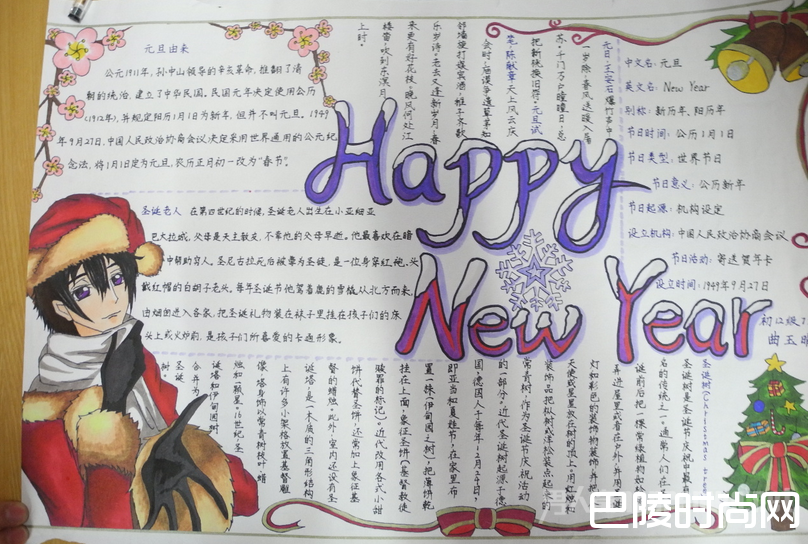 元旦由来
公元1911年,孙中山领导的辛亥革命,推翻了清
朝的统治,建立了中华民国。民国元年决定使用公历
(1912年),并规定阳历1月1日为新年,但并不叫元旦。1949
年9月27日,中国人民政治协商会议决定采用世界通用的公元纪
念法,将1月1日定为元旦,农历正月初一改为"春节"。
元日:王安石爆竹声中
一岁除,春风送暖入屠
苏。千门万户曈曈日,总
把新桃换旧符。元旦试
笔:陈献章天上风云庆
会时,庙谟争遣草茅知
邻墙旋打娱宾酒,稚子齐歌
乐岁诗。老去又逢新岁月,春
来更有好花枝。晚风何处江
楼笛,吹到东溟月
上时。
中文名:元旦
英文名:New Year
别称:新历年,阳历年
节日时间:公历1月1日
节日类型:世界节日
节日意义:公历新年
节日起源:机构设定
设立机构:中国人民政治协商会议
节日活动:寄送贺年卡
设立时间:1949年9月27日
Happy
New Year
圣诞老人 在第四世纪的时候,圣诞老人出生在小亚细亚
巴大拉城,父母是天主教友,不幸他的父母早逝。他最喜欢在暗
中帮助穷人。圣尼古拉死后被尊为圣徒,是一位身穿红袍、头
戴红帽的白胡子老头。每年圣诞节他驾着鹿的雪橇从北方而来,
由烟囱进入各家,把圣诞礼物装在袜子里挂在孩子们的床
头上或火炉前,是孩子们所喜爱的卡通形象。
圣诞树(Christmas tree)
圣诞树是圣诞节庆祝中最
名的传统之一。通常人们在
诞前后把一棵常绿植物如松
弄进屋里或者在户外,并用
灯和彩色的装饰物装饰,并把
天使或星星放在树的顶上。用灯烛和
装饰品把枞树或洋松装点起来的
常青树,作为圣诞节庆祝活动
的一部分。近代圣诞树起源于德
国,德国人于每年12月24日,
即亚当和夏娃节,在家里布
置一株(伊甸园之树),把薄饼乾
挂在上面,象征圣饼(基督教徒
赎罪的标记)。近代改用各式小甜
饼代替圣饼,还常加上象征基
督的蜡烛。此外,室内还设有圣
诞塔,是一木质的三角形结构
上有许多小架格放置基督雕
像,塔身饰以常青树枝叶、蜡
烛和一颗星。16世纪,圣
诞塔和伊甸园树
合并为
圣诞
树。
巴陵时尚网